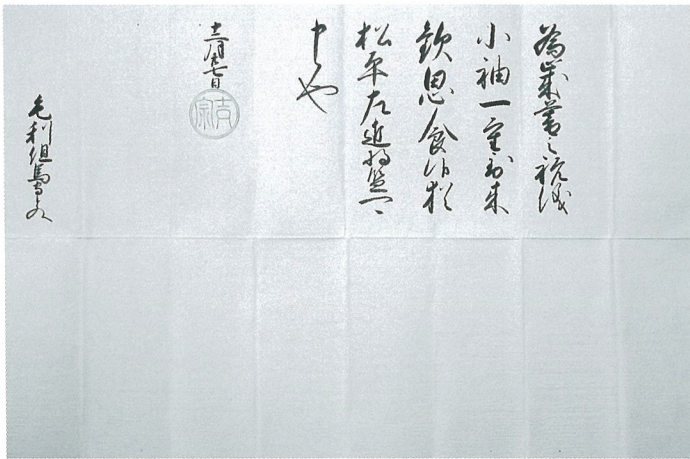 為歳暮之祝儀
小袖一重到来
歓思食候猶
松平左近将監可
申也
十二月廿七日
吉宗
毛利但馬守とのへ